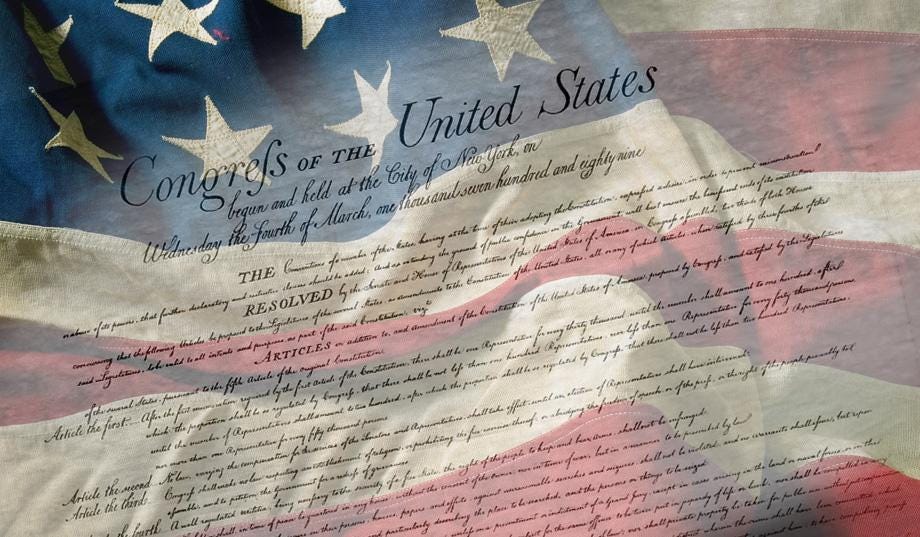 Congreſs OF THE United States
begun and held at the City of New York, on
Wednesday the Fourth of March, one thousand seven hundred and eighty nine
THE Conventions of a number of the States, having at the time of their adopting the Constitution, expressed a desire, in order to prevent misconstruction
or abuse of its powers, that further declaratory and restrictive clauses should be added: And as extending the ground of public confidence in the Government, will best ensure the beneficent ends of its institution
RESOLVED by the Senate and House of Representatives of the United States of America, in Congreſs aſsembled, two thirds of both Houses
concurring, that the following Articles be proposed to the Legislatures of the several States, as amendments to the Constitution of the United States, all or any of which Articles, when ratified by three fourths of the
said Legislatures, to be valid to all intents and purposes as part of the said Constitution, viz.
ARTICLES in addition to, and Amendment of the Constitution of the United States of America, proposed by Congreſs, and ratified by the Legislatures
of the several States, pursuant to the fifth Article of the original Constitution.
Article the first. After the first enumeration required by the first Article of the Constitution, there shall be one Representative for every thirty thousand, until the number shall amount to one hundred, after
which, the proportion shall be so regulated by Congreſs, that there shall be not leſs than one hundred Representatives, nor leſs than one Representative for every forty thousand persons
until the number of Representatives shall amount to two hundred, after which, the proportion shall be so regulated by Congreſs, that there shall not be leſs than two hundred Representatives,
nor more than one Representative for every fifty thousand persons
Article the second. No law, varying the compensation for the services of the Senators and Representatives, shall take effect, until an election of Representatives shall have intervened.
Article the third. Congreſs shall make no law respecting an establishment of religion, or prohibiting the free exercise thereof, or abridging the freedom of speech, or of the preſs, or the right of the people peaceably to
aſsemble, and to petition the Government for a redreſs of grievances
fourth. A well regulated militia, being neceſsary to the security of a free State, the right of the people to keep and bear arms, shall not be infringed.
in time of peace be quartered in any house, without the consent of the owner, nor in time of war, but in a manner to be prescribed by law
in their persons, houses, papers, and effects, against unreasonable searches and seizures, shall not be violated, and no warrants shall iſsue, but upon
particularly describing the place to be searched, and the persons or things to be seized.